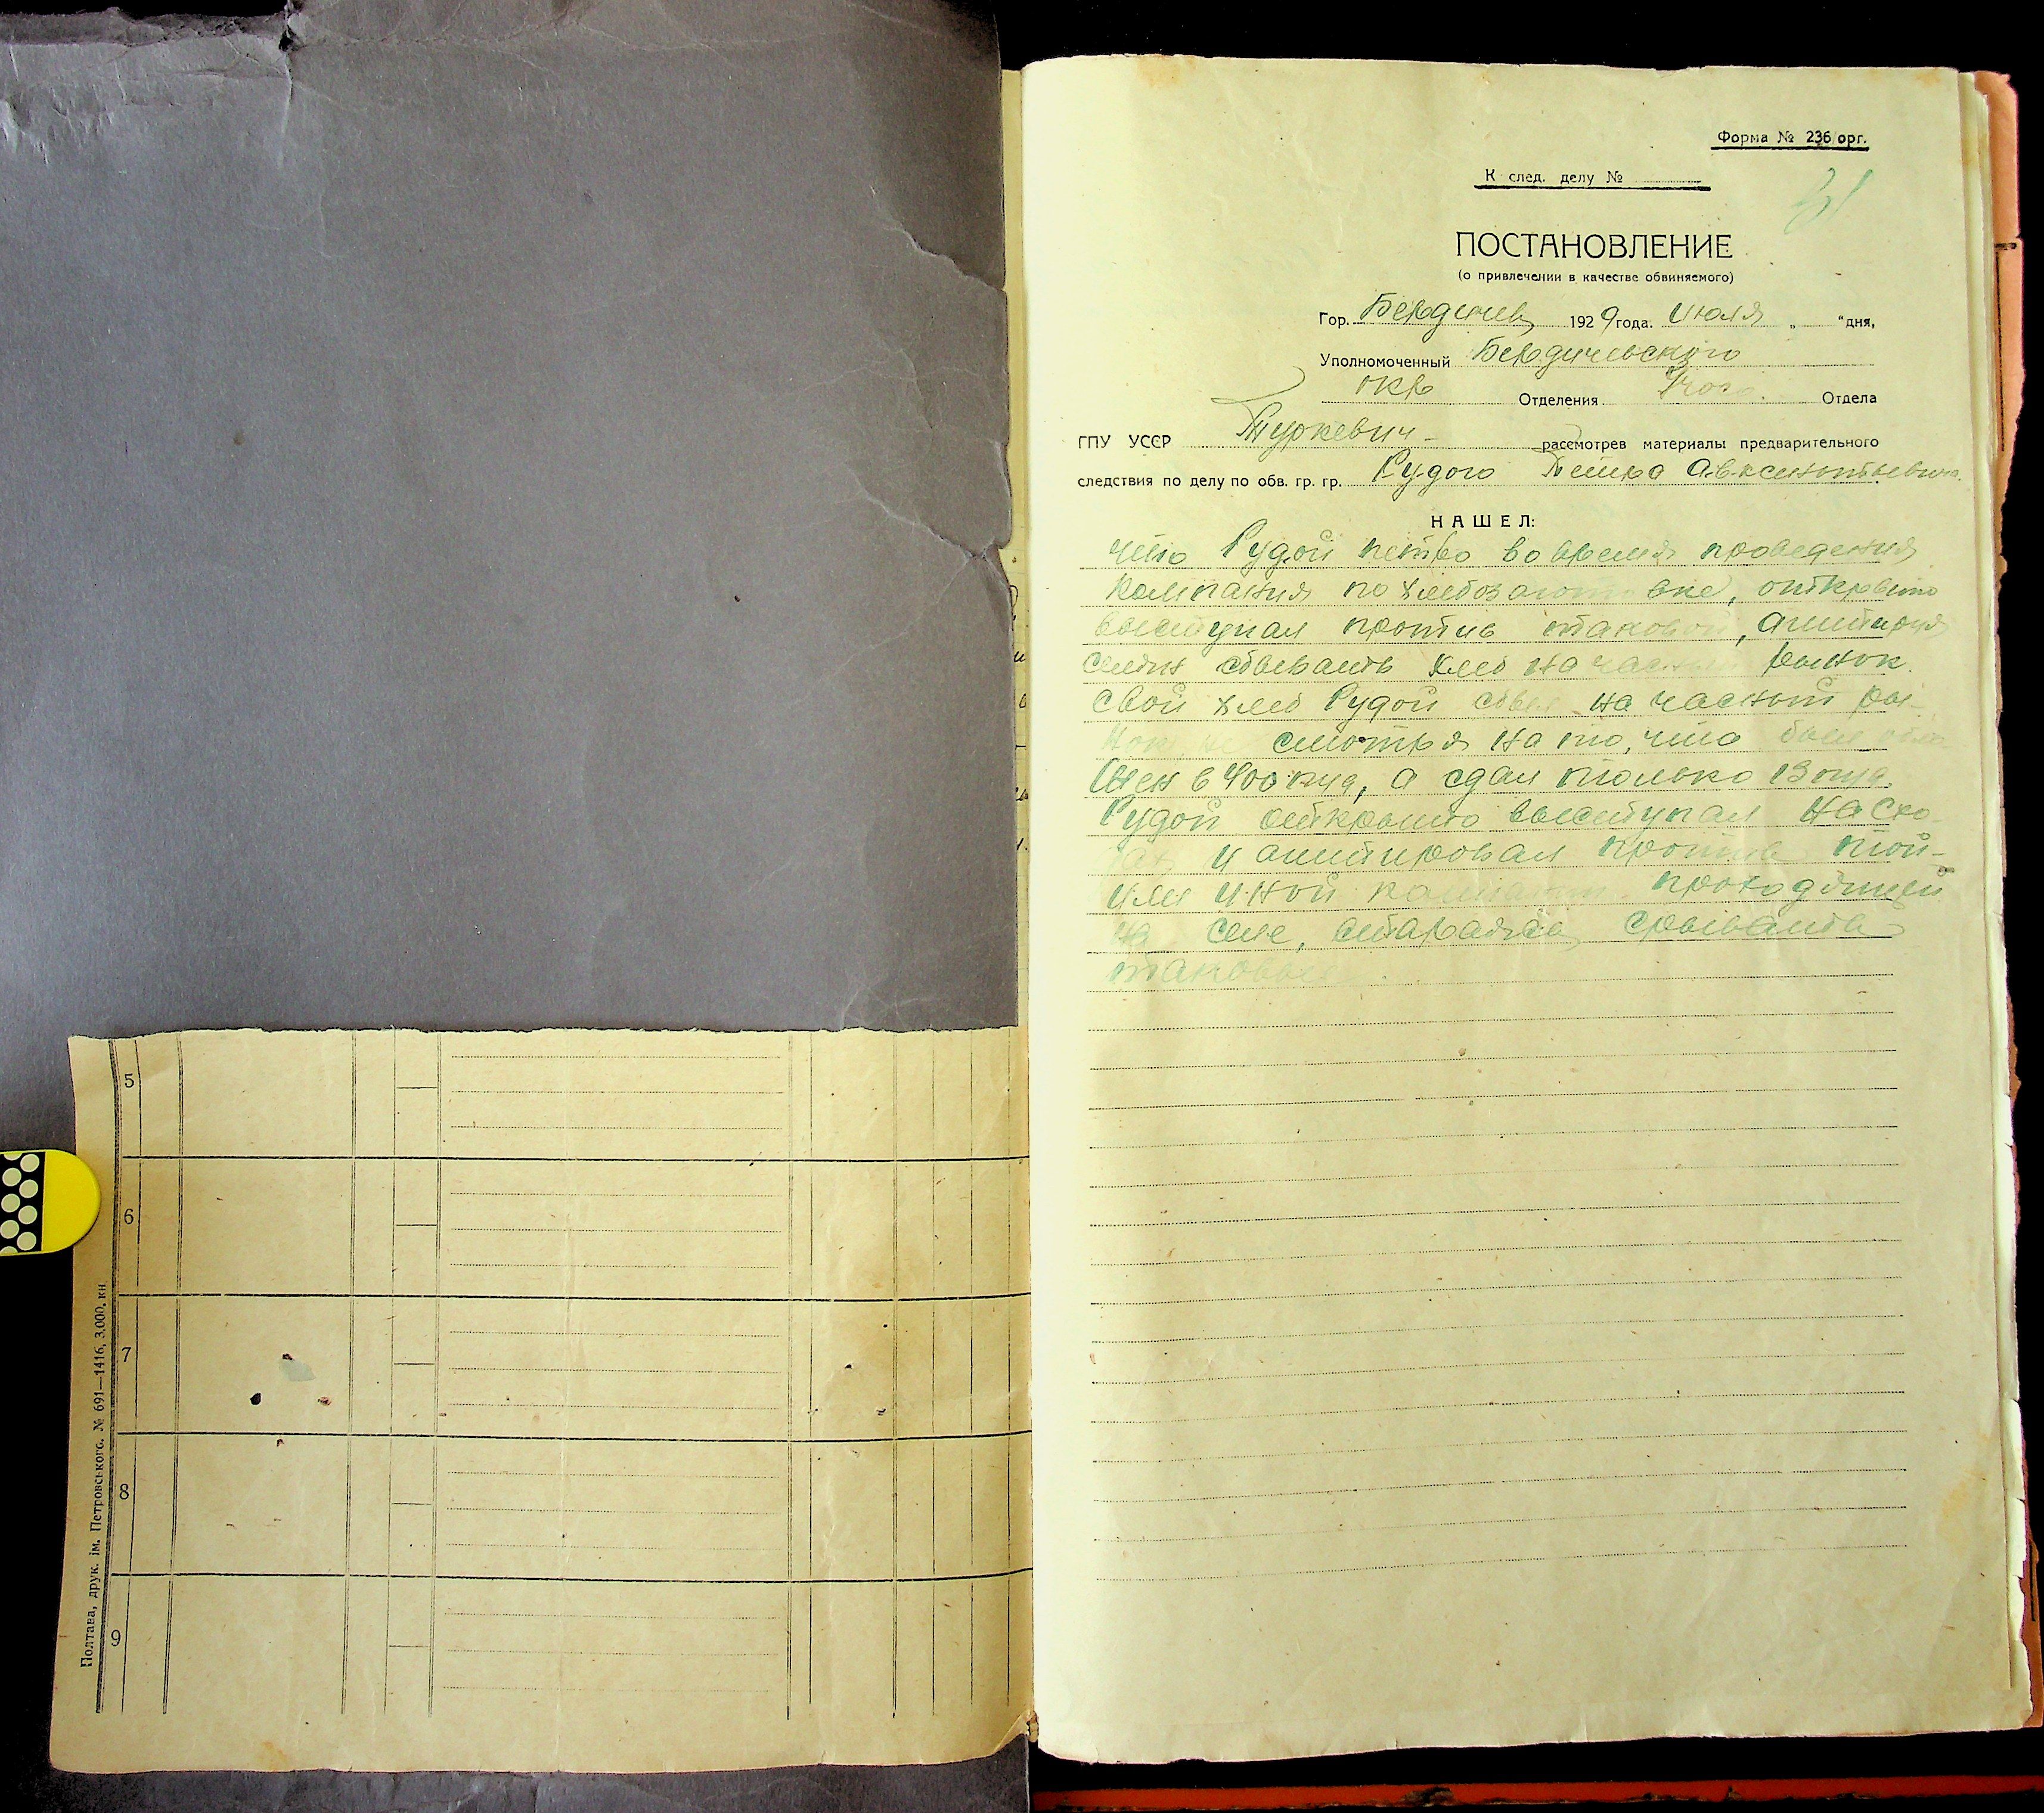 5
6
7
8
9
Полтава, друк. ім. Петровського. № 691—1416, 3.000. кн
Форма № 236/орг.
К след. делу №
ПОСТАНОВЛЕНИЕ
(о привлечении в качестве обвиняемого)
Гор. Бердичев 1929 года. Июля „ “ дня,
Уполномоченный Бердичевского
окр Отделения Отдела
ГПУ УССР Туркевич - рассмотрев материалы предварительного
следствия по делу по обв. гр. гр. Рудого Петра Авксентьевича.
НАШЕЛ:
что Рудой петро во время проведения
кампания по хлебозаготовке, открыто
выступал против таковой, агитируя
селян сбывать хлеб на частный рынок.
Свой хлеб Рудой сбыл на частный ры-
нок, не смотря на то, что был обло
жен в 400 пуд, а сдал только
Рудой открыто выступал на схо-
дах и агитировал против той-
или иной кампании проходящей
на селе, стараясь срывать
таковые.